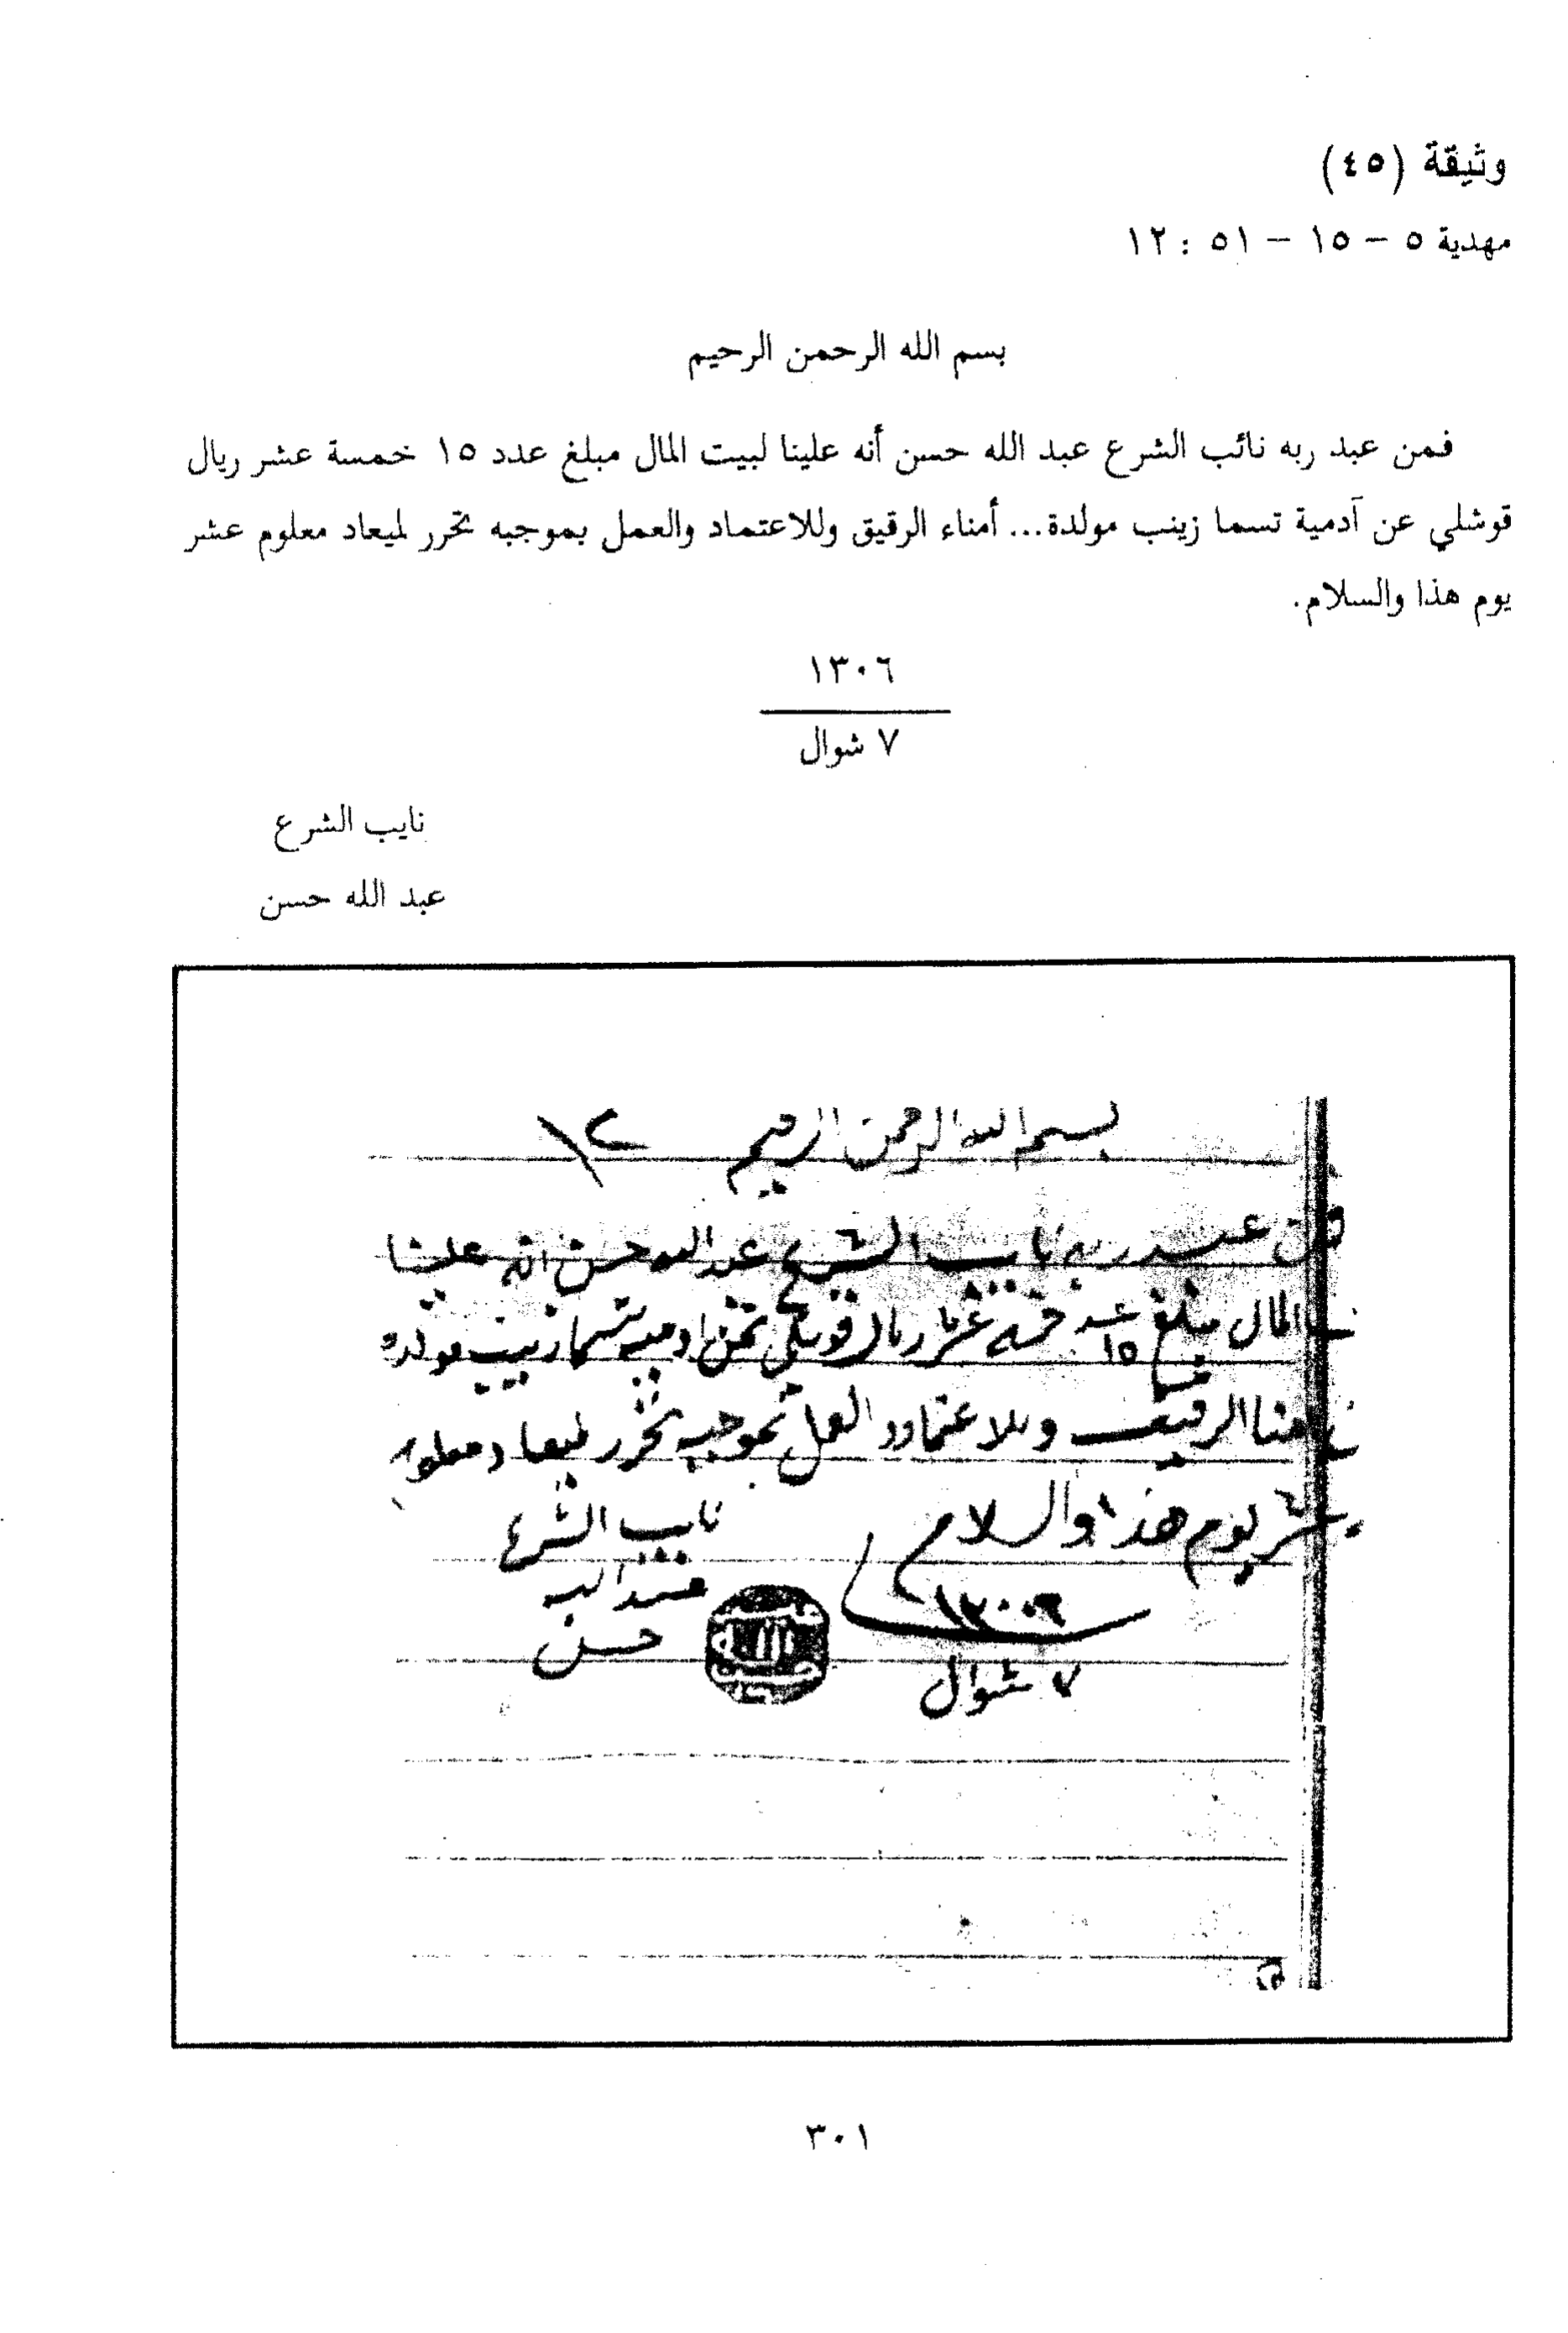 وثيقة (٤٥)
مهدية ٥ – ١٥ – ٥١ : ١٢
بسم الله الرحمن الرحيم
فمن عبد ربه نائب الشرع عبد الله حسن أنه علينا لبيت المال مبلغ عدد ١٥ خمسة عشر ريال
قوشلي عن آدمية تسما زينب مولدة... أمناء الرقيق وللاعتماد والعمل بموجبه تحرر لميعاد معلوم عشر
يوم هذا والسلام.
١٣٠٦
٧ شوال
نايب الشرع
عبد الله حسن
بسم الله الرحمن الرحيم ١٢
فمن عبد ربه نايب الشرع عبد الله حسن انه علينا
المال مبلغ عدد ١٥ خمسة عشر ريال قوشلي ثمن ادميه تسما زينب مولده
امنا الرقيق وللاعتماد و العمل بموجبه تحرر لميعاد معلوم
عشر يوم هذا والسلام
نايب الشرع
عبد الله
حسن
١٣٠٦
٧ شوال
٣٠١